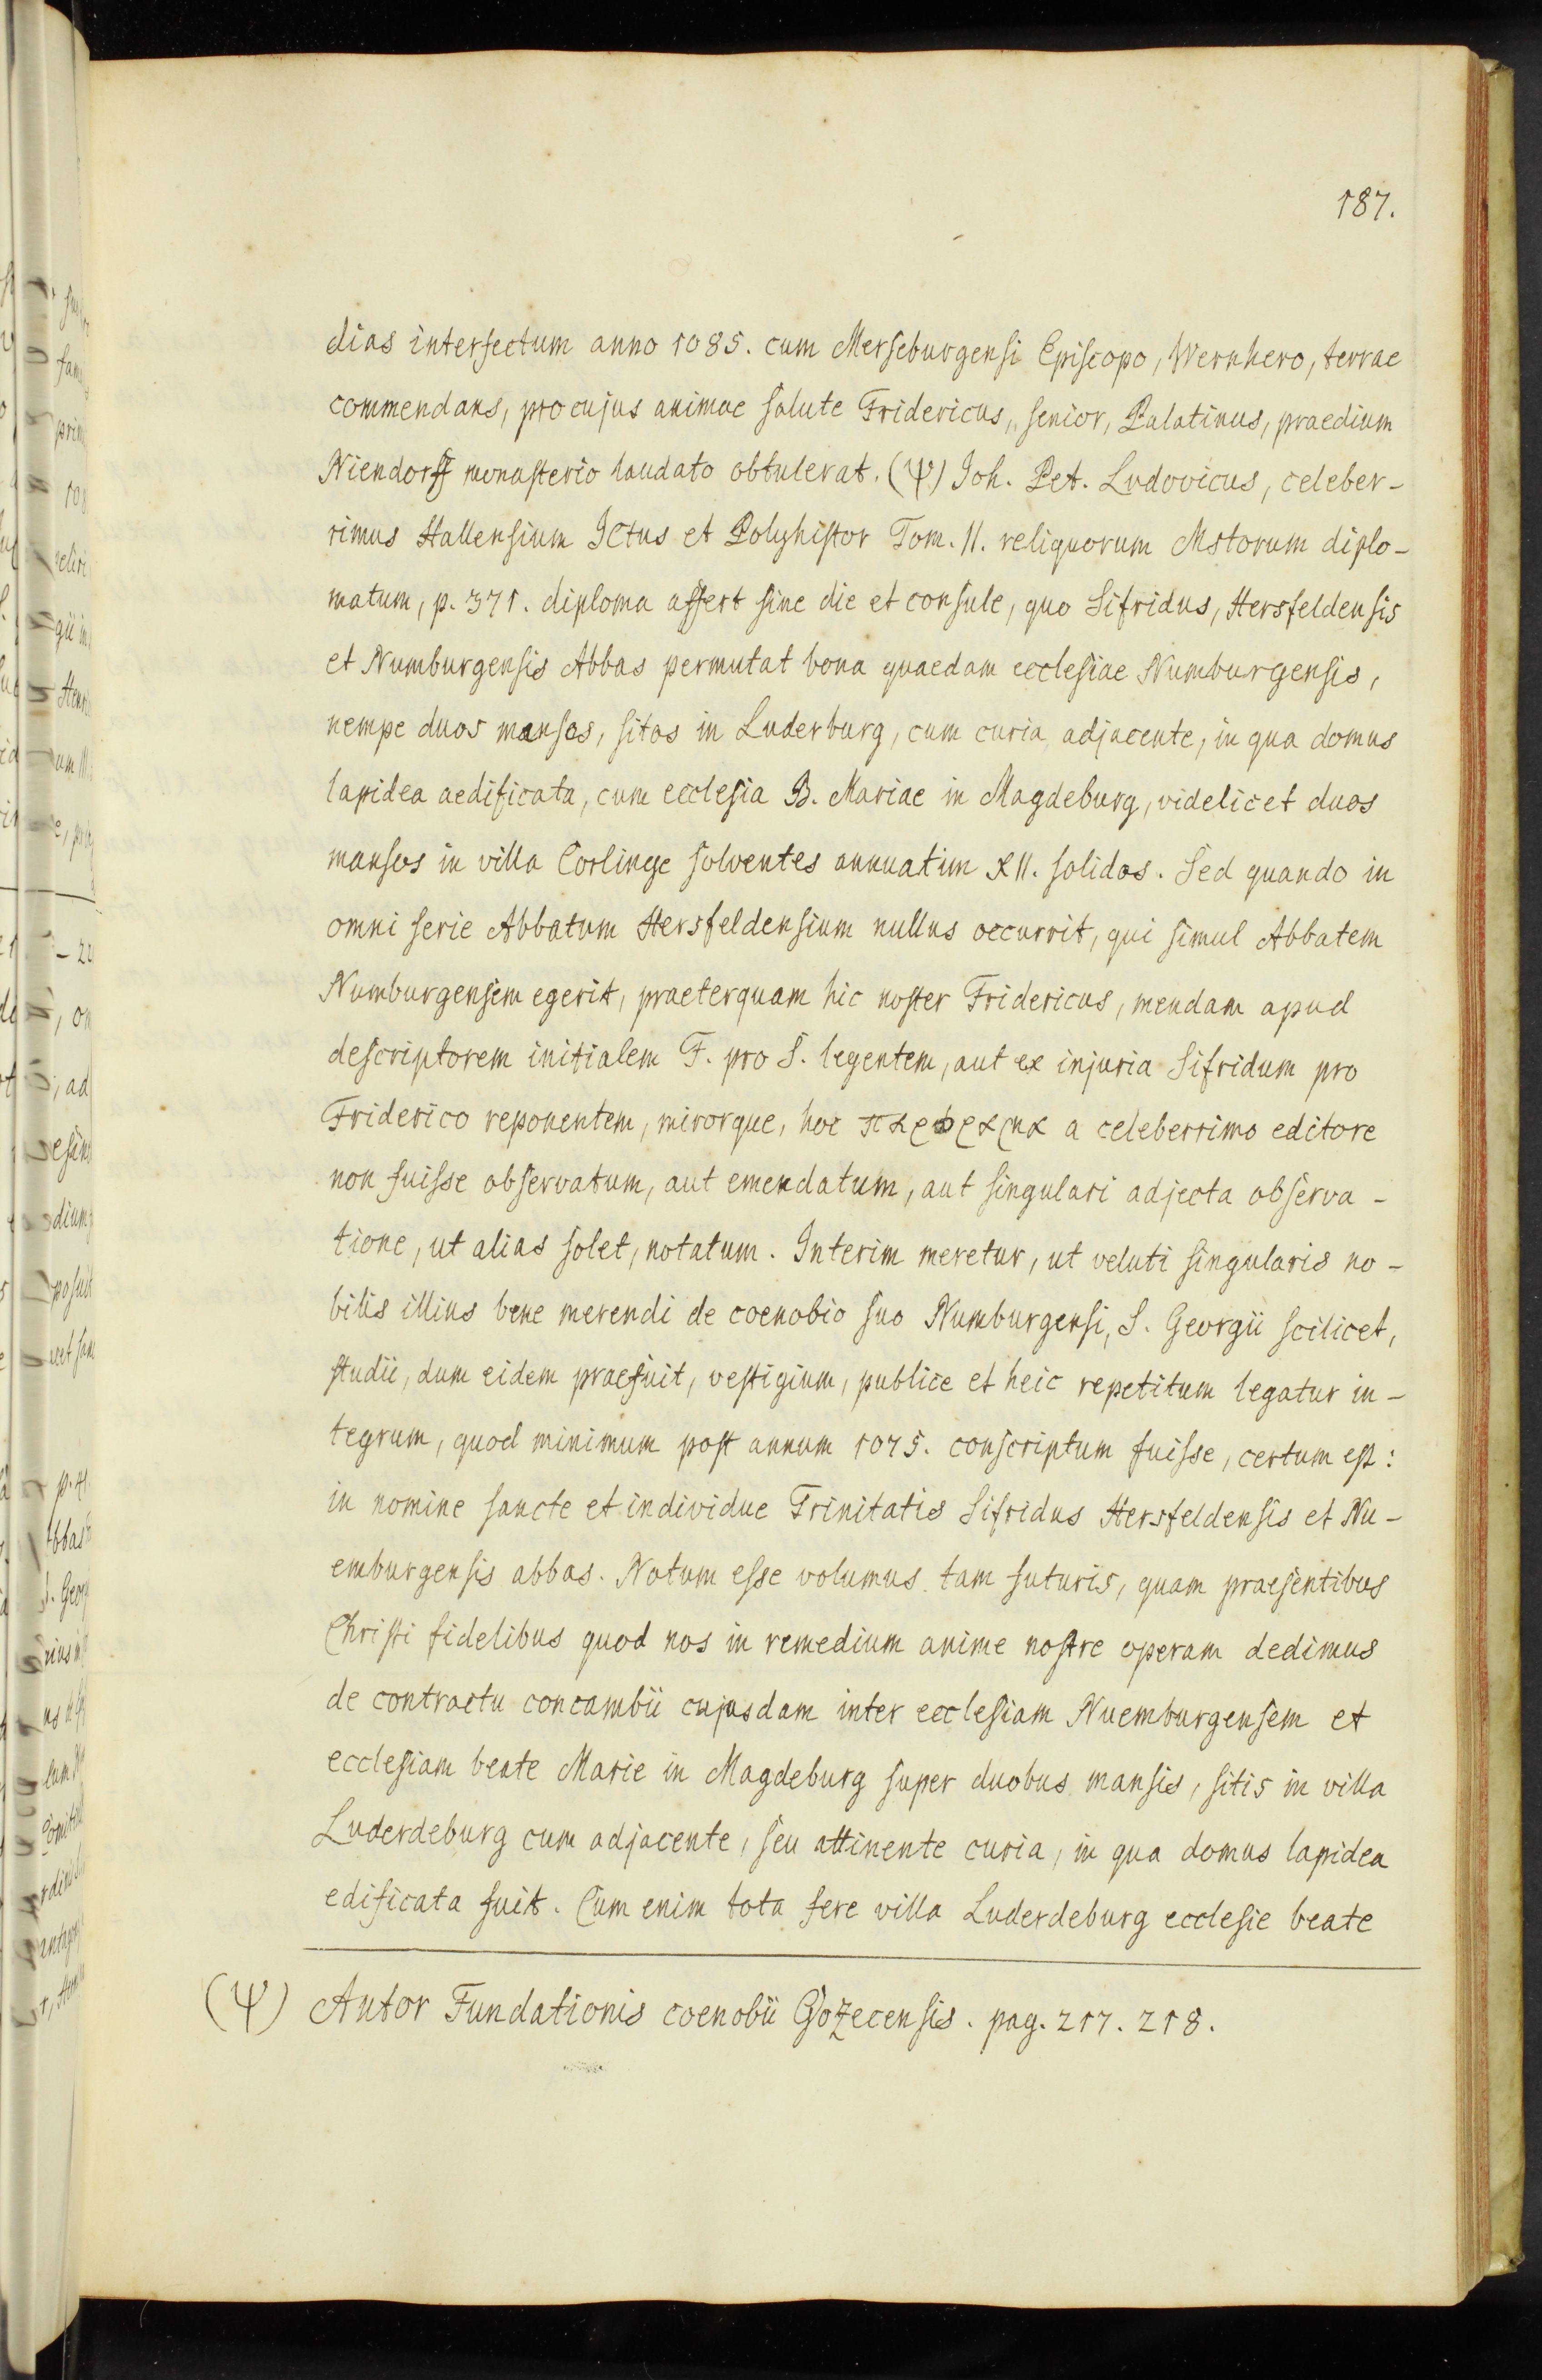 187.
dias interfectum anno 1085. cum Merseburgensi Episcopo, Wernhero, terrae
commendans, pro cujus animae salute Fridericus, senior, Palatinus, praedium
Niendorff monasterio laudato obtulerat. (Ψ) Joh. Pet. Ludovicus, celeber-
rimus Hallensium Ictus et Polyhistor Tom. II. reliquorum Mstorum diplo-
matum, p. 371. diploma affert sine die et consule, quo Sifridus, Hersfeldensis
et Numburgensis Abbas permutat bona quaedam ecclesiae Numburgensis,
nempe duos mansos, sitos in Luderburg, cum curia adjacente, in qua domus
lapidea aedificata, cum ecclesia B. Mariae in Magdeburg, videlicet duos
mansos in villa Corlinge solventes annuatim XII. solidos. Sed quando in
omni serie Abbatum Hersfeldensium nullus occurrit, qui simul Abbatem
Numburgensem egerit, praeterquam hic noster Fridericus, mendam apud
descriptorem initialem F. pro S. legentem, aut ex injuria Sifridum pro
Friderico reponentem, mirorque, hoc a celeberrimo editore
non fuisse observatum, aut emendatum, aut singulari adjecta observa-
tione, ut alias solet, notatum. Interim meretur, ut veluti singularis no-
bilis illius bene merendi de coenobio suo Numburgensi, S. Georgii scilicet,
studii, dum eidem praefuit, vestigium, publice et heic repetitum legatur in-
tegrum, quod minimum post annum 1075. conscriptum fuisse, certum est:
in nomine sancte et individue Trinitatis Sifridus Hersfeldensis et Nu-
emburgensis abbas. Notum esse volumus tam futuris, quam praesentibus
Christi fidelibus quod nos in remedium anime nostre operam dedimus
de contractu concambii cujusdam inter ecclesiam Nuemburgensem et
ecclesiam beate Marie in Magdeburg super duobus mansis, sitis in villa
Luderdeburg cum adjacente, seu attinente curia, in qua domus lapidea
edificata fuit. Cum enim tota fere villa Luderdeburg ecclesie beate
(Ψ) Autor Fundationis coenobii Gozecensis. pag. 217. 218.